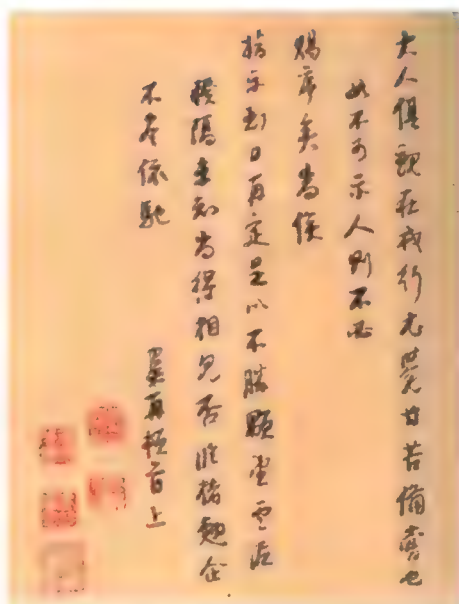 大人俱親在我行尤覺甘苦備嘗也
如不可示人則不必
賜序矣尚俟
指示到日再定是以不勝願望雲泥
積隔未知尚得相見否臨楮翹企
不盡依馳
再頓首上